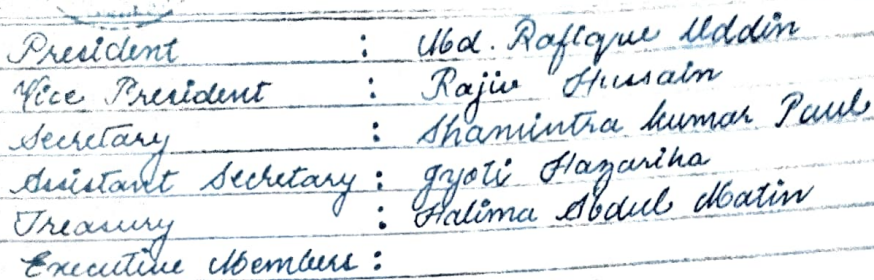 President : Md. Rafique Uddin
Vice President : Rajiv Hussain
Secretary : Shamintra kumar Paul
Assistant Secretary : Gyoti Hazarika
Treasury : Halima Abdul Matin
Executive Members :